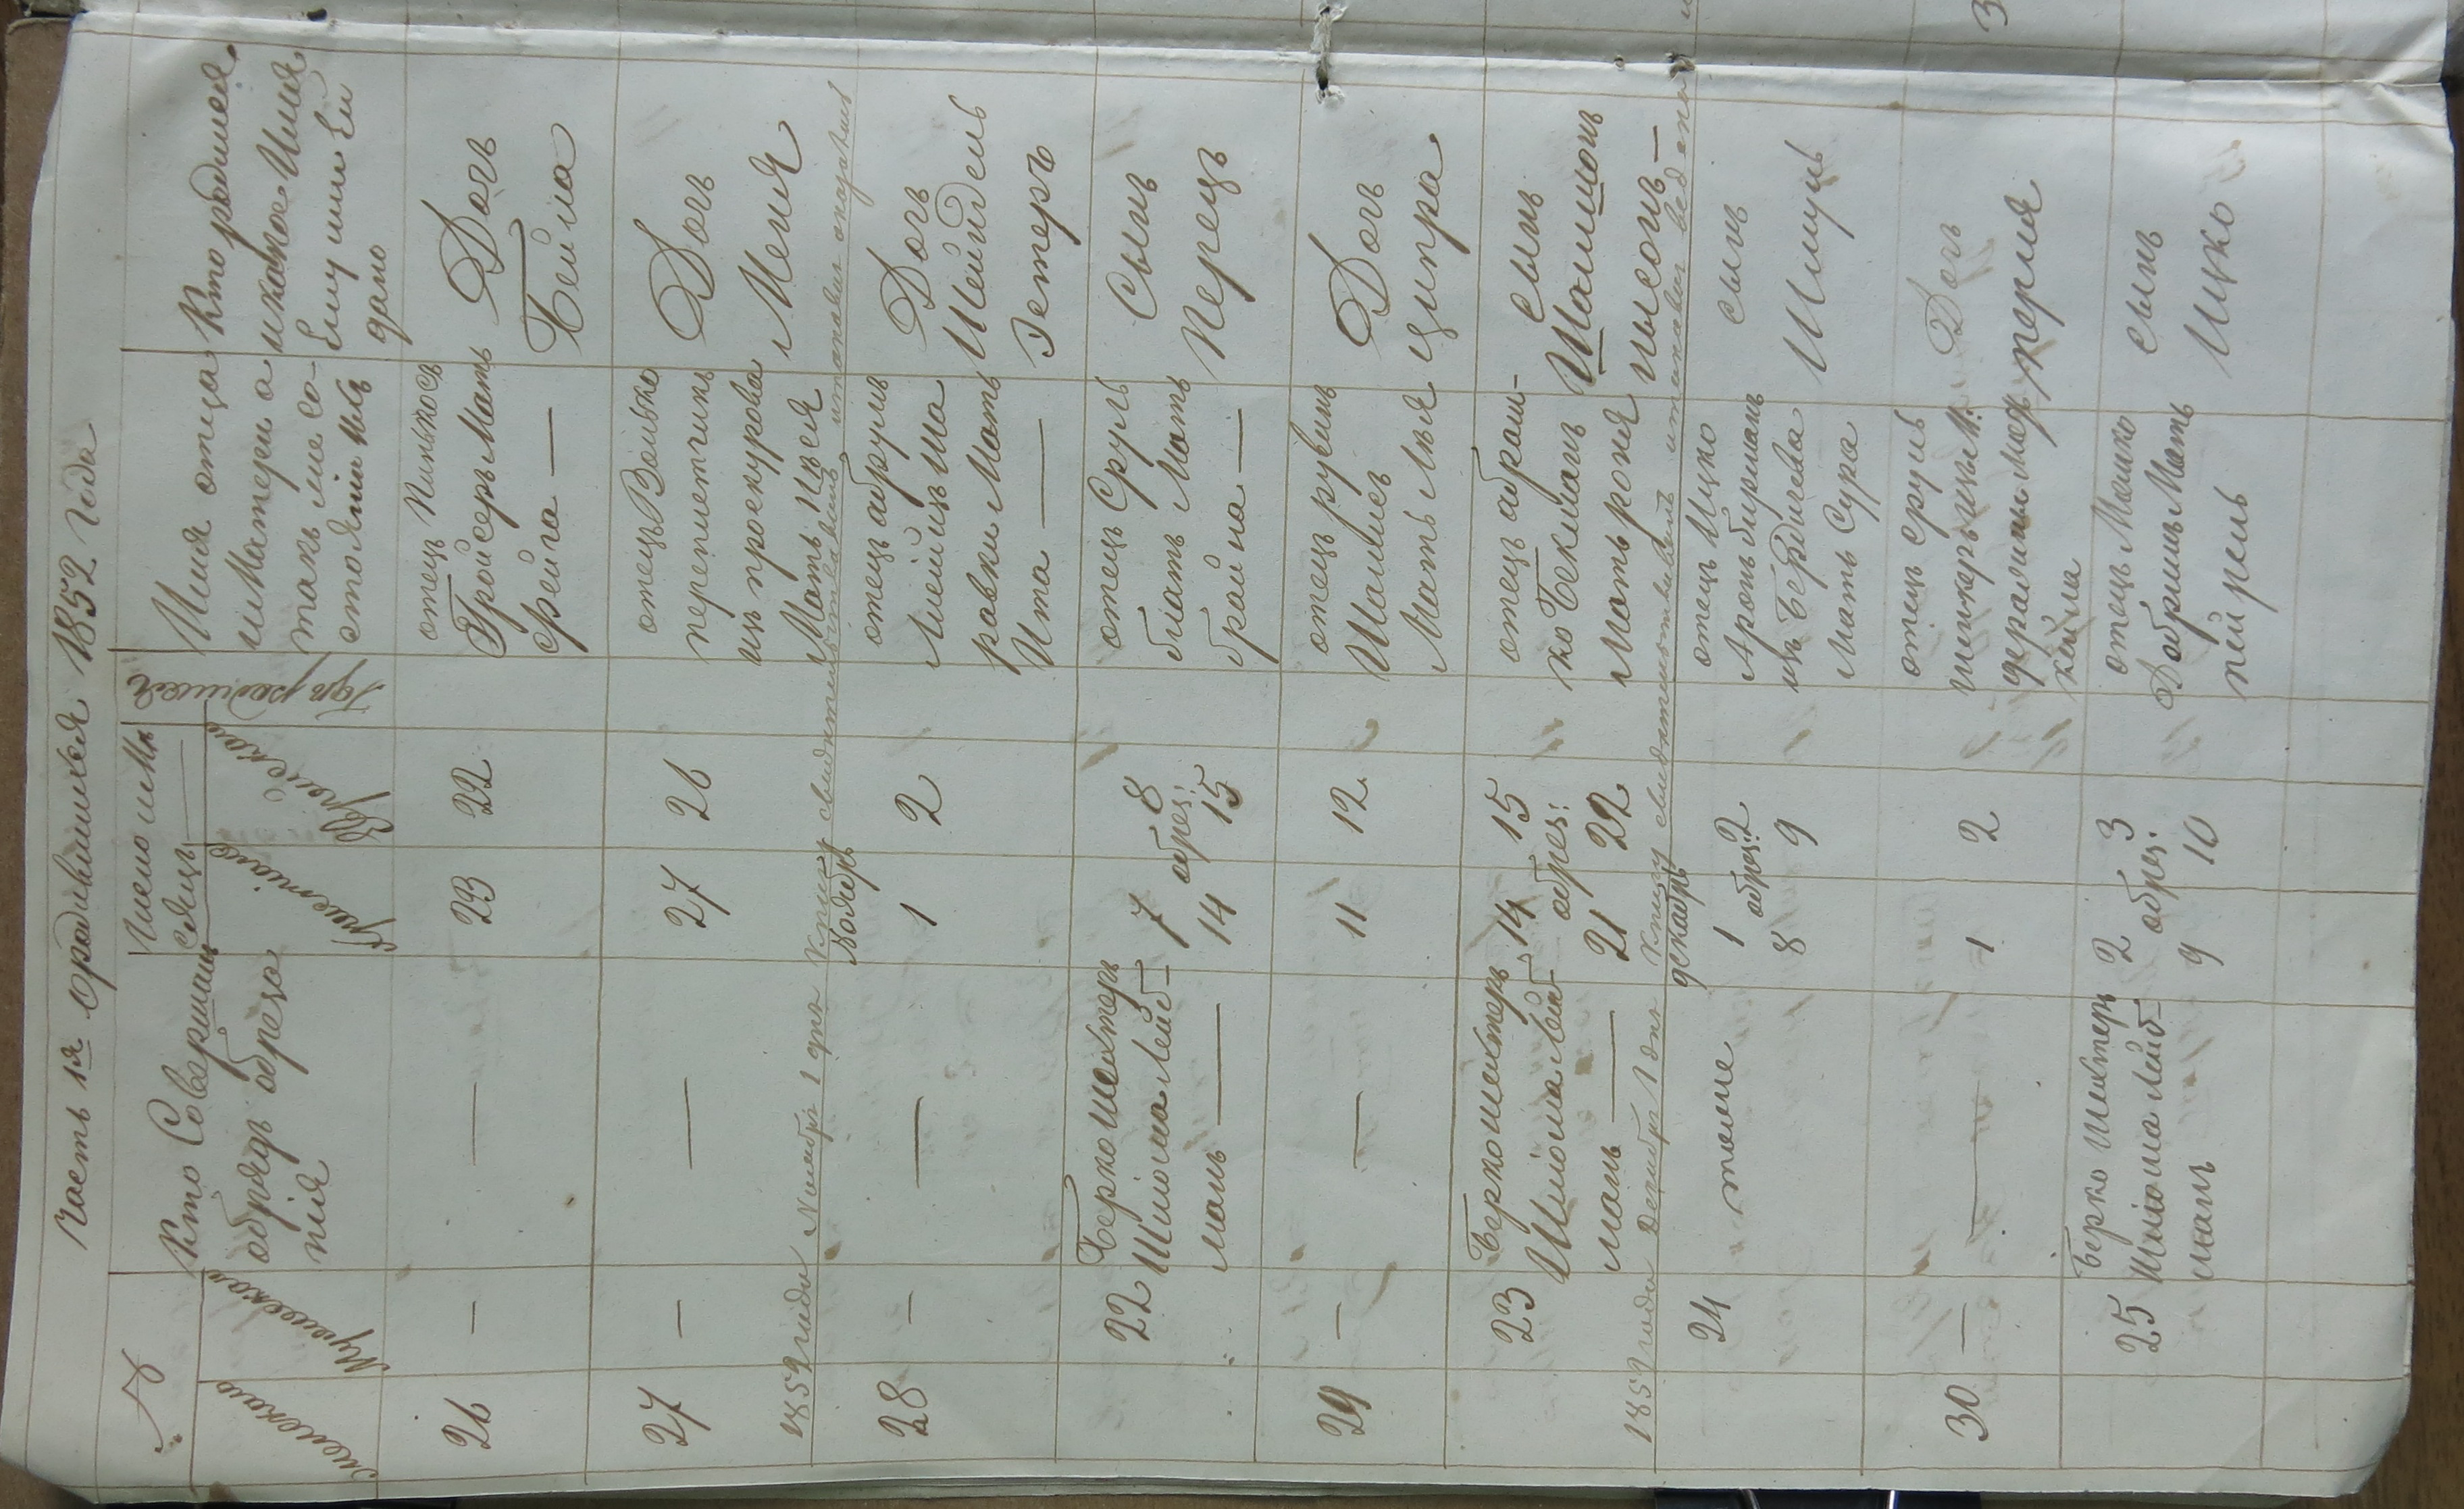 Часть 1я о родившихся 1852 года
№
женскаго
Мужескаго
Кто Совершалъ
обрядъ обреза
нія
Число и Мѣ
сяцъ
Христіанс
Еврейскаго
Гдѣ родился
Имя отца
и Матери а
такъ же со-
стояніи ихъ
Кто родился
и какое Имя
Ему или Ей
дано
26 — — 23 22
отецъ Пинхосъ
Гройсеръ Мать
Фейга —
Дочь
Бейла
27 — — 27 26
отецъ Волько
перепметчикъ
изъ проскурова
Мать Песя
Дочь
Меня
1852 года Ноября 1 дня Книгу свидетельствовалъ
Ноябрь
28 — — 1 2
отецъ абрумъ
Мать
Ита —
Дочь
Шейндель
Эстеръ
22
Берко Шехтеръ
Шлиома Лейб-
манъ —
7 8
обрез:
14 15
отецъ Сруль
блатъ Мать
брайна —
Сынъ
Перецъ
29 — — 11 12
отецъ рувинъ
Мать Лея
Дочь
Ципра
23
Берко шехтеръ
Шлиома Лейб-
манъ —
14 15
обрез:
21 22
отецъ абрам-
ко Бекманъ
Мать рохля
сынъ
Шалимонъ
нысонъ —
1852 года Декабря 1 дня Книгу свидетельствовалъ
декабрь
24
тоже
1 2
обрез:
8 9
отецъ Ицко
Аронъ бирманъ
изъ бердичева
Мать Сура
сынъ
Шмуль
30 — — 1 2
отецъ сруль
Дочь
перля
25
Берко Шехтеръ
Шлиома Лейб-
манъ
2 3
обрез:
9 10
отецъ Мошко
Добришъ Мать
пейрель
сынъ
Ицко
3